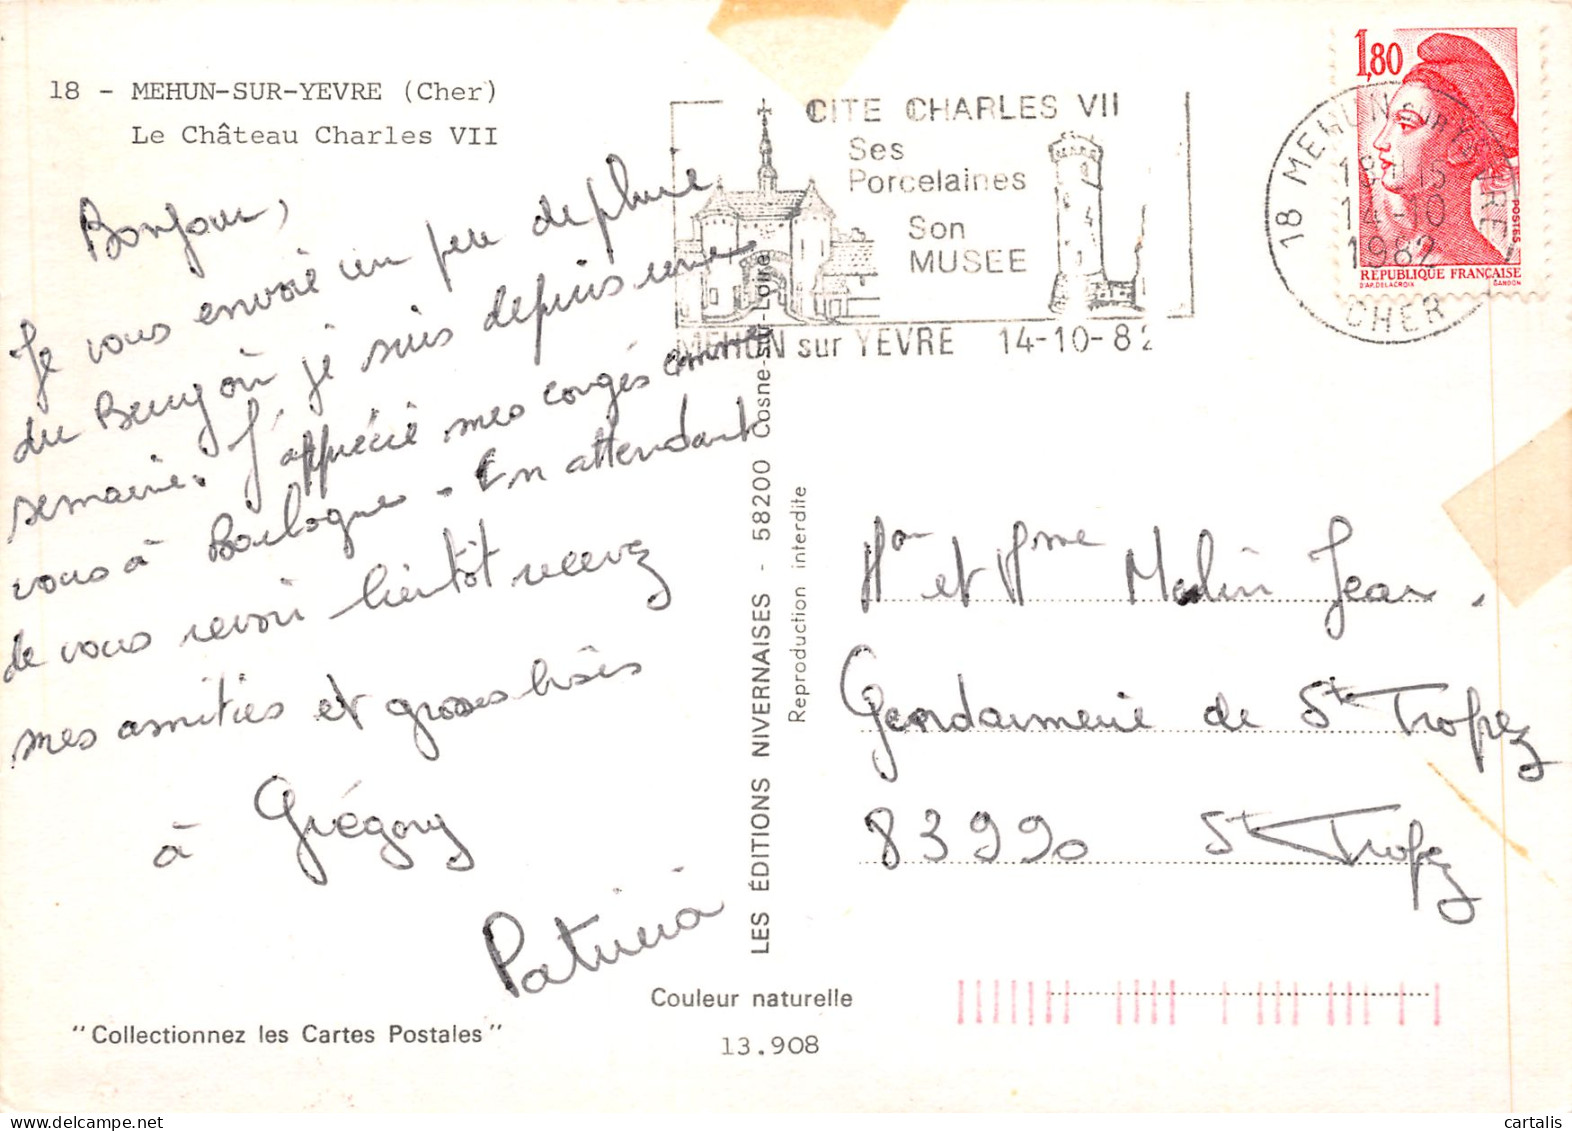 18 - MEHUN-SUR-YEVRE (Cher)
Le Château Charles VII
Bonjour,
Je vous envoie un peu de pluie
du Berry où je suis depuis une
semaine. J'apprécie mes congés comme
vous à Boulogne. En attendant
de vous revoir bientôt recevez
mes amitiés et grosses bises
à Grégory
Patricia
"Collectionnez les Cartes Postales"
Couleur naturelle
13.908
LES ÉDITIONS NIVERNAISES - 58200 Cosne-sur-Loire
Reproduction interdite
CITE CHARLES VII
Ses
Porcelaines
Son
MUSEE
MEHUN sur YEVRE 14-10-82
18 MEHUN SUR YEVRE
18H15
14-10
1982
CHER
1,80
POSTES
RÉPUBLIQUE FRANÇAISE
D'AP. DELACROIX GANDON
Mr et Mme Jean
Gendarmerie de St Tropez
83990 St Tropez
cartalis